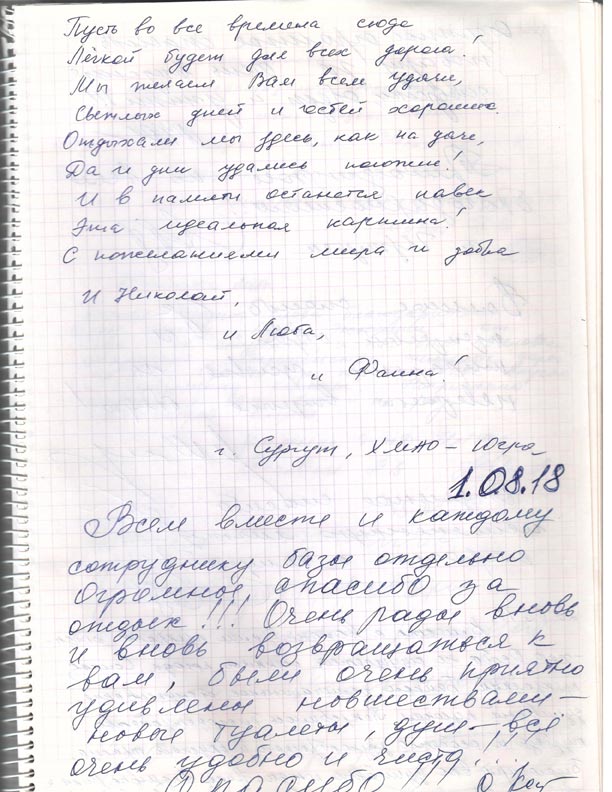 Пусть во все времена сюда
Лёгкой будет для всех дорога!
Мы желаем Вам всем удачи,
Светлых дней и гостей хороших.
Отдыхали мы здесь, как на даче,
Да и дни удались погожие!
И в памяти останется навек
Эта идеальная картина!
С пожеланиями мира и добра
И Николай,
и Люба,
и Фаина!
г. Сургут, ХМАО – Югра
1.08.18
Всем вместе и каждому
сотруднику базы отдельно
огромное спасибо за
отдых!!! Очень рады вновь
и вновь возвращаться к
вам, были очень приятно
удивлены новшествами –
новые туалеты, душ – всё
очень удобно и чисто!!!
Спасибо!!!